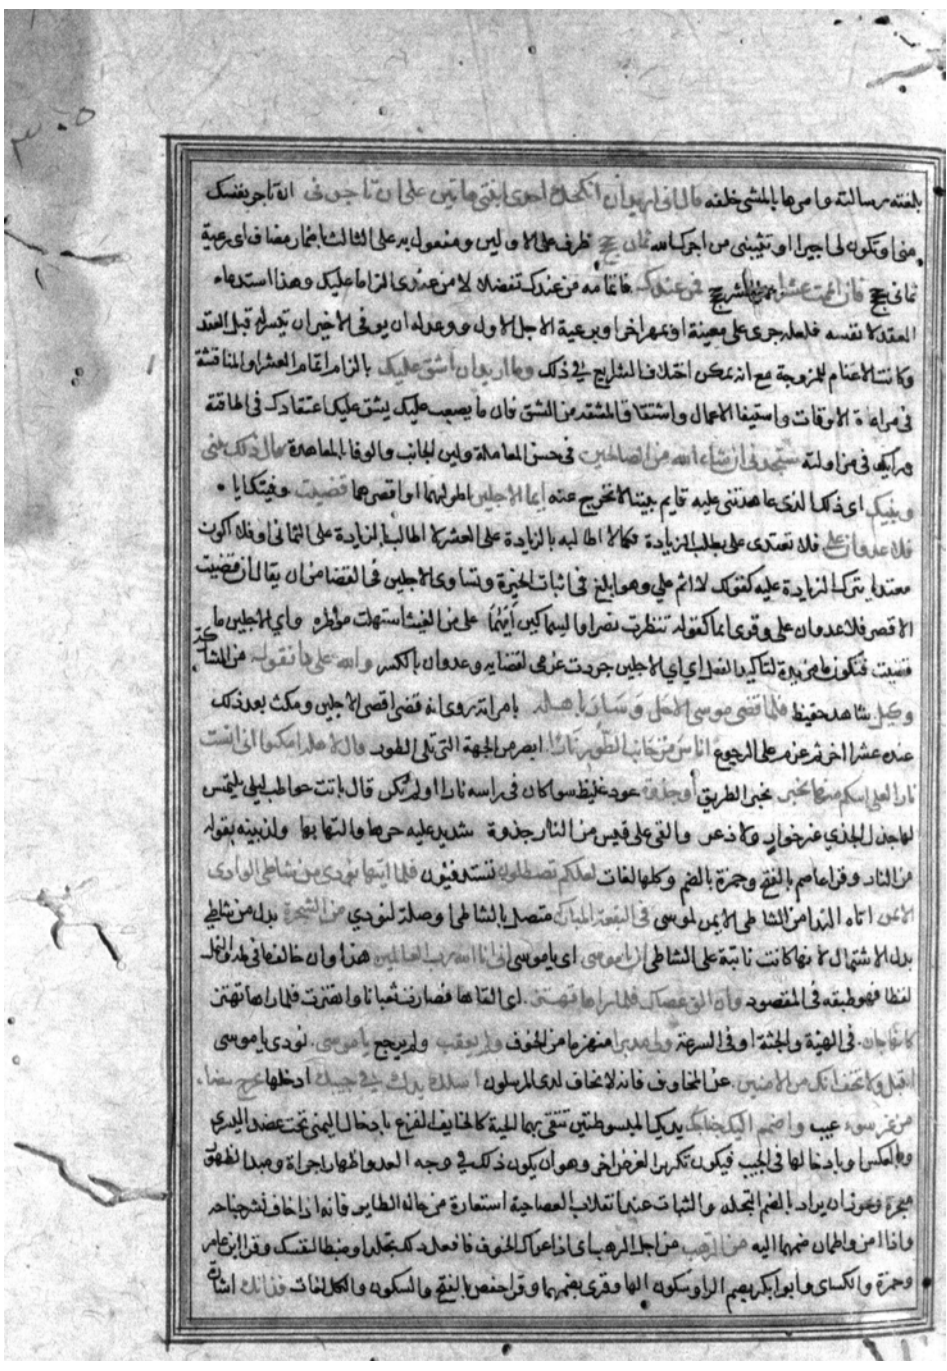 ٣٠٥
بلغته رسالته وامرها بالمشي خلفه قال انى اريد ان انكحك احدى ابنتى هاتين على ان تاجرنى اى تاجر بنفسك
منى او تكون لى اجيرا او تثيبنى من اجرك الله ثمان حجج ظرف على الاولين ومفعول به على الثالث باضمار مضاف اى رعية
ثمانى حجج فان اتممت عشرا عشر حجج فمن عندك فاتمامه من عندك تفضلا لا من عندى الزاما عليك وهذا استدعاء
العقد لا نفسه فلعله جرى على معينة او بمهر اخر او برعية الاجل الاول ووعد له ان يوفى الاخير ان تيسر له قبل العقد
وكانت الاغنام للمزوجة مع انه يمكن اختلاف الشرايع في ذلك وما اريد ان اشق عليك بالزام اتمام العشر او المناقشة
فى مراعاة الاوقات واستيفا الاعمال واشتقاق المشقة من الشق فان ما يصعب عليك يشق عليك اعتقادك فى اطاقته
ورايك فى مزاولته ستجدنى ان شاء الله من الصالحين فى حسن المعاملة ولين الجانب والوفا بالمعاهدة قال ذلك بينى
وبينك اى ذلك الذى عاهدتنى عليه قايم بيننا لا نخرج عنه ايما الاجلين اطولهما او اقصرهما قضيت وفيتك اياه
فلا عدوان على فلا تعتدى على بطلب الزيادة فكما لا اطالب بالزيادة على العشر لا اطالب بالزيادة على الثمانى او فلا اكون
معتديا بترك الزيادة عليه كقولك لا اثم علي وهو ابلغ فى اثبات الخيرة وتساوى الاجلين فى القضا من ان يقال ان قضيت
الاقصر فلا عدوان على وقرى ايما كقوله تنظرت نصرا والسماكين أيهما على من الغيث استهلت مواطره واي الاجلين ما
قضيت فتكون ما مزيدة لتاكيد الفعل اي اي الاجلين جردت عزمى لقضايه وعدوان بالكسر والله على ما نقول من المشارطة
وكيل شاهد حفيظ فلما قضى موسى الاجل وسار باهله بامراته روى انه قضى اقصى الاجلين ومكث بعد ذلك
عنده عشرا اخر ثم عزم على الرجوع انس من جانب الطور نارا ابصر من الجهة التى تلى الطور قال لاهله امكثوا انى انست
نارا لعلى اتيكم منها بخبر بخبر الطريق او جذوة عود غليظ سوا كان فى راسه نار او لم يكن قال باتت حواطب ليلى يلتمسن
لها جزل الجذي غير خوار ولا دعر والقى على قبس من النار جذوة شديد عليه حرها والتهابها ولذلك بينه بقوله
من النار وقرا عاصم بالفتح وحمزة بالضم وكلها لغات لعلكم تصطلون تستدفئون فلما اتيها نودى من شاطى الوادى
الايمن اتاه الندا من الشاطى الايمن لموسى فى البقعة المباركة متصل بالشاطى او صلة لنودي من الشجرة بدل من شاطى
بدل الاشتمال لانها كانت نابتة على الشاطى ان يا موسى اى يا موسى انى انا الله رب العالمين هذا وان خالف ما فى طه والنمل
لفظا فهو طبقه فى المقصود وان الق عصاك فلما راها تهتز اى القاها فصارت ثعبانا واهتزت فلما راها تهتز
كانها جان فى الهيئة والجثة او فى السرعة ولى مدبرا منهزما من الخوف ولم يعقب ولم يرجع يا موسى نودى يا موسى
اقبل ولا تخف انك من الامنين من المخاوف فانه لا يخاف لدى المرسلون اسلك يدك في جيبك ادخلها تخرج بيضاء
من غير سوء عيب واضمم اليك جناحك يديك المبسوطتين تتقى بهما الحية كالخايف الفزع بادخال اليمنى تحت عضد اليسرى
وبالعكس او بادخالها فى الجيب فيكون تكريرا لغرض اخر وهو ان يكون ذلك في وجه العدو اظهار جراة ومبدا لظهور
معجزة ويجوز ان يراد بالضم التجلد والثبات عند انقلاب العصا حية استعارة من حال الطاير فانه اذا خاف نشر جناحيه
واذا امن واطمان ضمهما اليه من الرهب من اجل الرهب اى اذا عراك الخوف فافعل ذلك تجلدا وضبطا لنفسك وقرا ابن عامر
وحمزة والكساى وابو بكر بضم الرا وسكون الها وقرى بضمهما وقرا حفص بالفتح والسكون والكل لغات فذانك اشارة